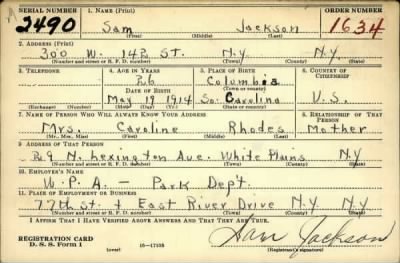 SERIAL NUMBER 1. NAME (Print) ORDER NUMBER
2490 Sam Jackson 1634
(First) (Middle) (Last)
2. ADDRESS (Print)
300 W. 142 St. N.Y. N.Y.
(Number and street or R. F. D. number) (Town) (County) (State)
3. TELEPHONE 4. AGE IN YEARS 5. PLACE OF BIRTH 6. COUNTRY OF CITIZENSHIP
26 Columbia
DATE OF BIRTH (Town or county)
May 19 1914 So. Carolina U.S.
(Exchange) (Number) (Mo.) (Day) (Yr.) (State or country)
7. NAME OF PERSON WHO WILL ALWAYS KNOW YOUR ADDRESS 8. RELATIONSHIP OF THAT PERSON
Mrs. Caroline Rhodes Mother
(Mr., Mrs., Miss) (First) (Middle) (Last)
9. ADDRESS OF THAT PERSON
N. Lexington Ave. White Plains N.Y
(Number and street or R. F. D. number) (Town) (County) (State)
10. EMPLOYER'S NAME
W.P.A. – Park Dep't.
11. PLACE OF EMPLOYMENT OR BUSINESS
77th St. + East River Drive N.Y N.Y
(Number and street or R. F. D. number) (Town) (County) (State)
I AFFIRM THAT I HAVE VERIFIED ABOVE ANSWERS AND THAT THEY ARE TRUE.
REGISTRATION CARD
D. S. S. Form 1 (over) 16—17105 Sam Jackson
(Registrant's signature)